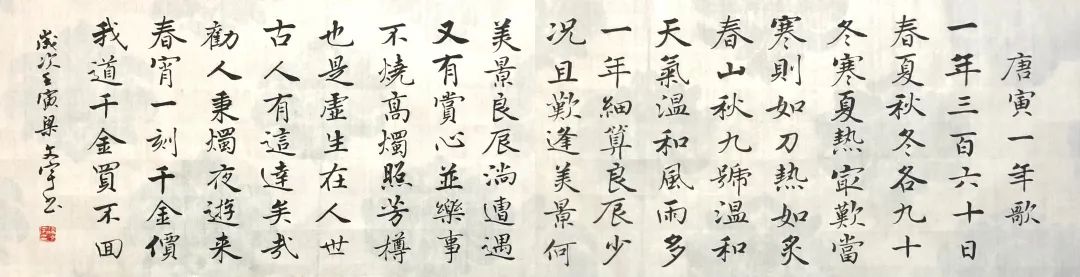 唐寅一年歌
一年三百六十日
春夏秋冬各九十
冬寒夏熱㝡難當
寒則如刀熱如炙
春山秋九號溫和
天氣溫和風雨多
一年細算良辰少
況且難逢美景何
美景良辰淌遭遇
又有賞心並樂事
不燒高燭照芳樽
也是虛生在人世
古人有這達矣哉
勸人秉燭夜遊来
春宵一刻千金價
我道千金買不回
歲次壬寅梁文宇书